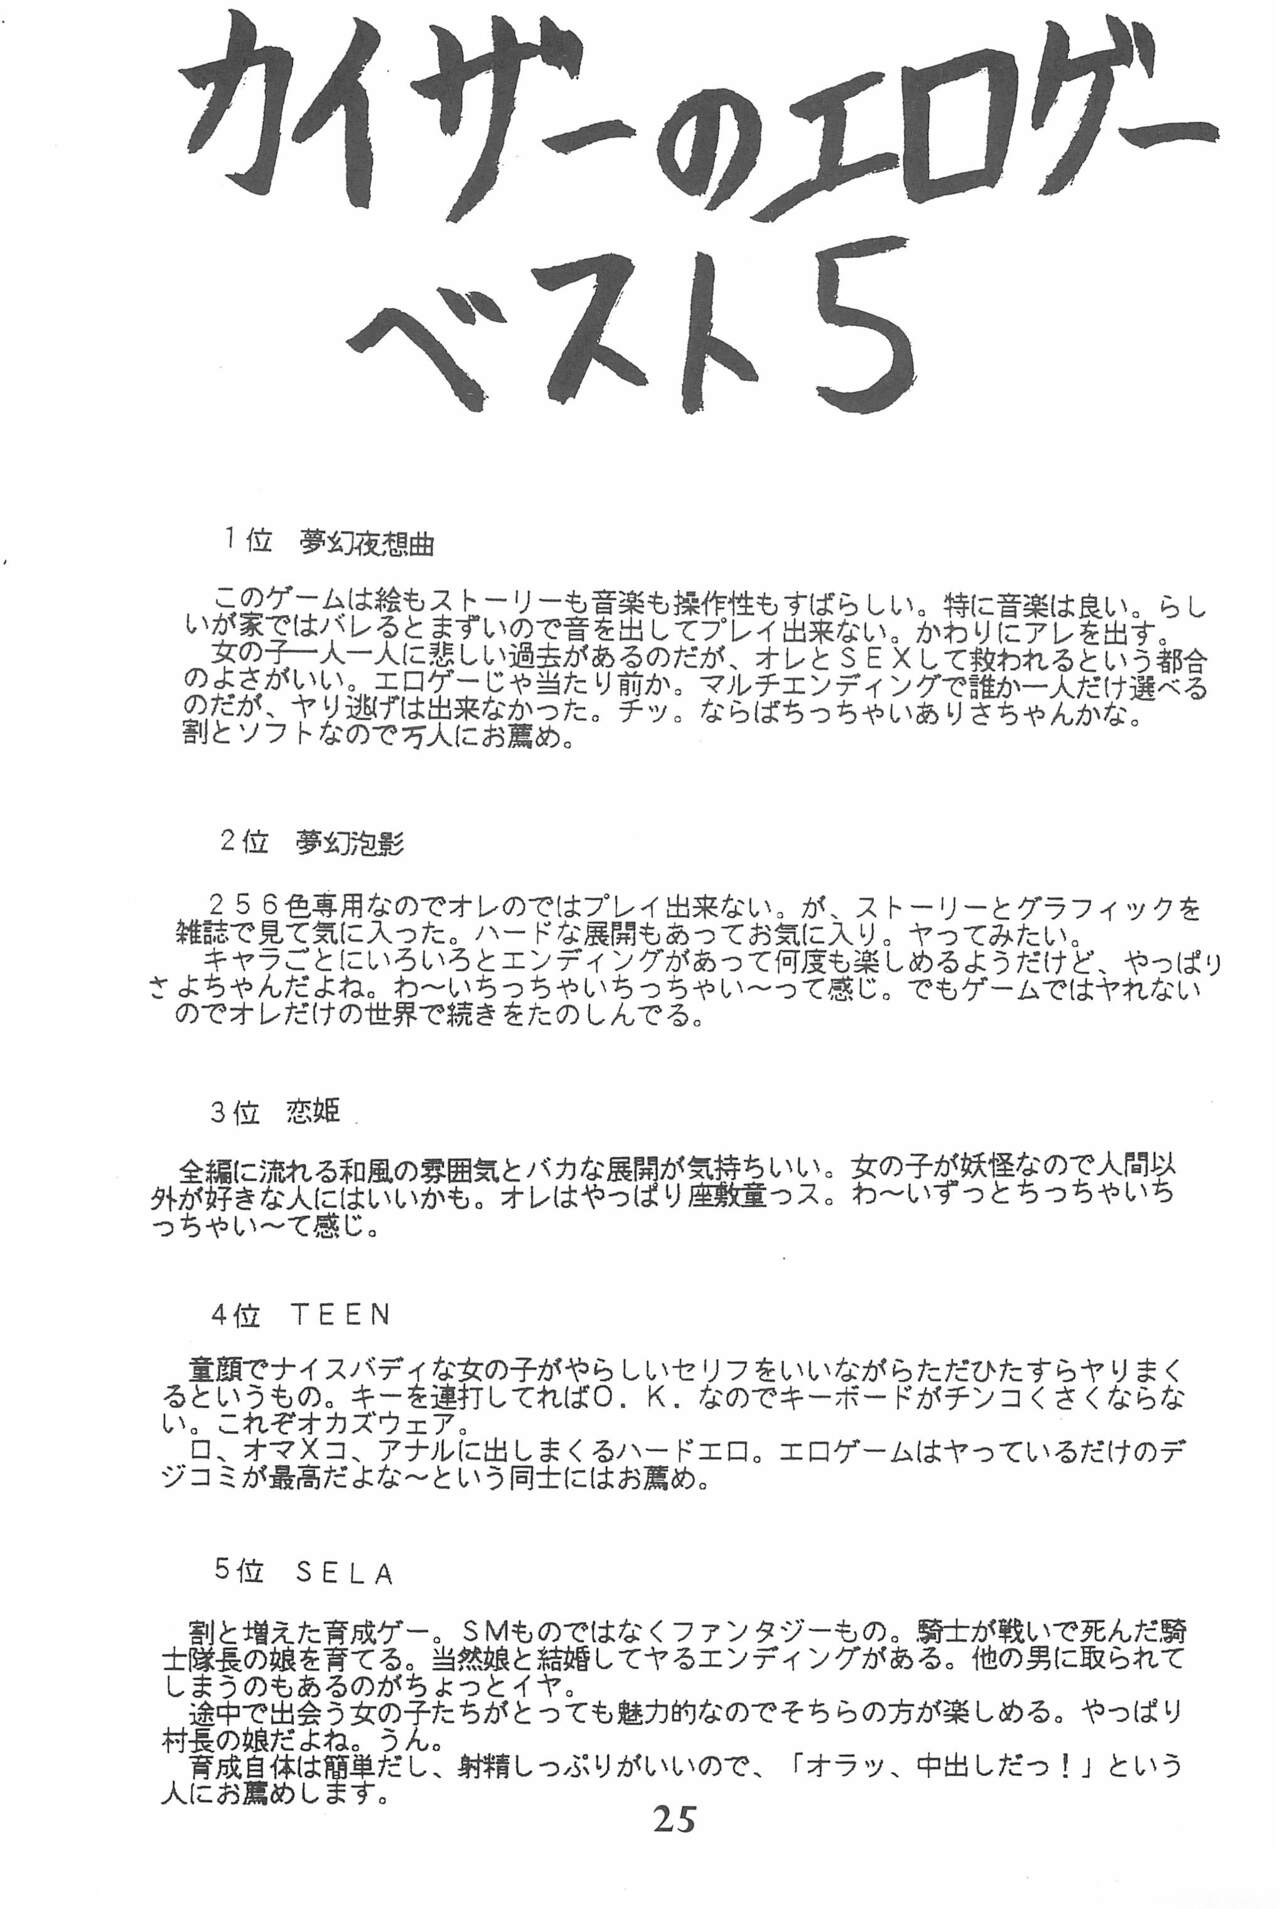 カイザーのエロゲー
ベスト5
1位　夢幻夜想曲
このゲームは絵もストーリーも音楽も操作性もすばらしい。特に音楽は良い。らし
いが家ではバレるとまずいので音を出してプレイ出来ない。かわりにアレを出す。
女の子一人一人に悲しい過去があるのだが、オレとＳＥＸして救われるという都合
のよさがいい。エロゲーじゃ当たり前か。マルチエンディングで誰か一人だけ選べる
のだが、ヤり逃げは出来なかった。チッ。ならばちっちゃいありさちゃんかな。
割とソフトなので万人にお薦め。
2位　夢幻泡影
２５６色専用なのでオレのではプレイ出来ない。が、ストーリーとグラフィックを
雑誌で見て気に入った。ハードな展開もあってお気に入り。ヤってみたい。
キャラごとにいろいろとエンディングがあって何度も楽しめるようだけど、やっぱり
さよちゃんだよね。わ～いちっちゃいちっちゃい～って感じ。でもゲームではヤれない
のでオレだけの世界で続きをたのしんでる。
3位　恋姫
全編に流れる和風の雰囲気とバカな展開が気持ちいい。女の子が妖怪なので人間以
外が好きな人にはいいかも。オレはやっぱり座敷童っス。わ～いずっとちっちゃいち
っちゃい～て感じ。
4位　ＴＥＥＮ
童顔でナイスバディな女の子がやらしいセリフをいいながらただひたすらヤりまく
るというもの。キーを連打してればＯ．Ｋ．なのでキーボードがチンコくさくならな
い。これぞオカズウェア。
口、オマＸコ、アナルに出しまくるハードエロ。エロゲームはヤっているだけのデ
ジコミが最高だよな～という同士にはお薦め。
5位　ＳＥＬＡ
割と増えた育成ゲー。ＳＭものではなくファンタジーもの。騎士が戦いで死んだ騎
士隊長の娘を育てる。当然娘と結婚してヤるエンディングがある。他の男に取られて
しまうのもあるのがちょっとイヤ。
途中で出会う女の子たちがとっても魅力的なのでそちらの方が楽しめる。やっぱり
村長の娘だよね。うん。
育成自体は簡単だし、射精しっぷりがいいので、「オラッ、中出しだっ！」という
人にお薦めします。
25